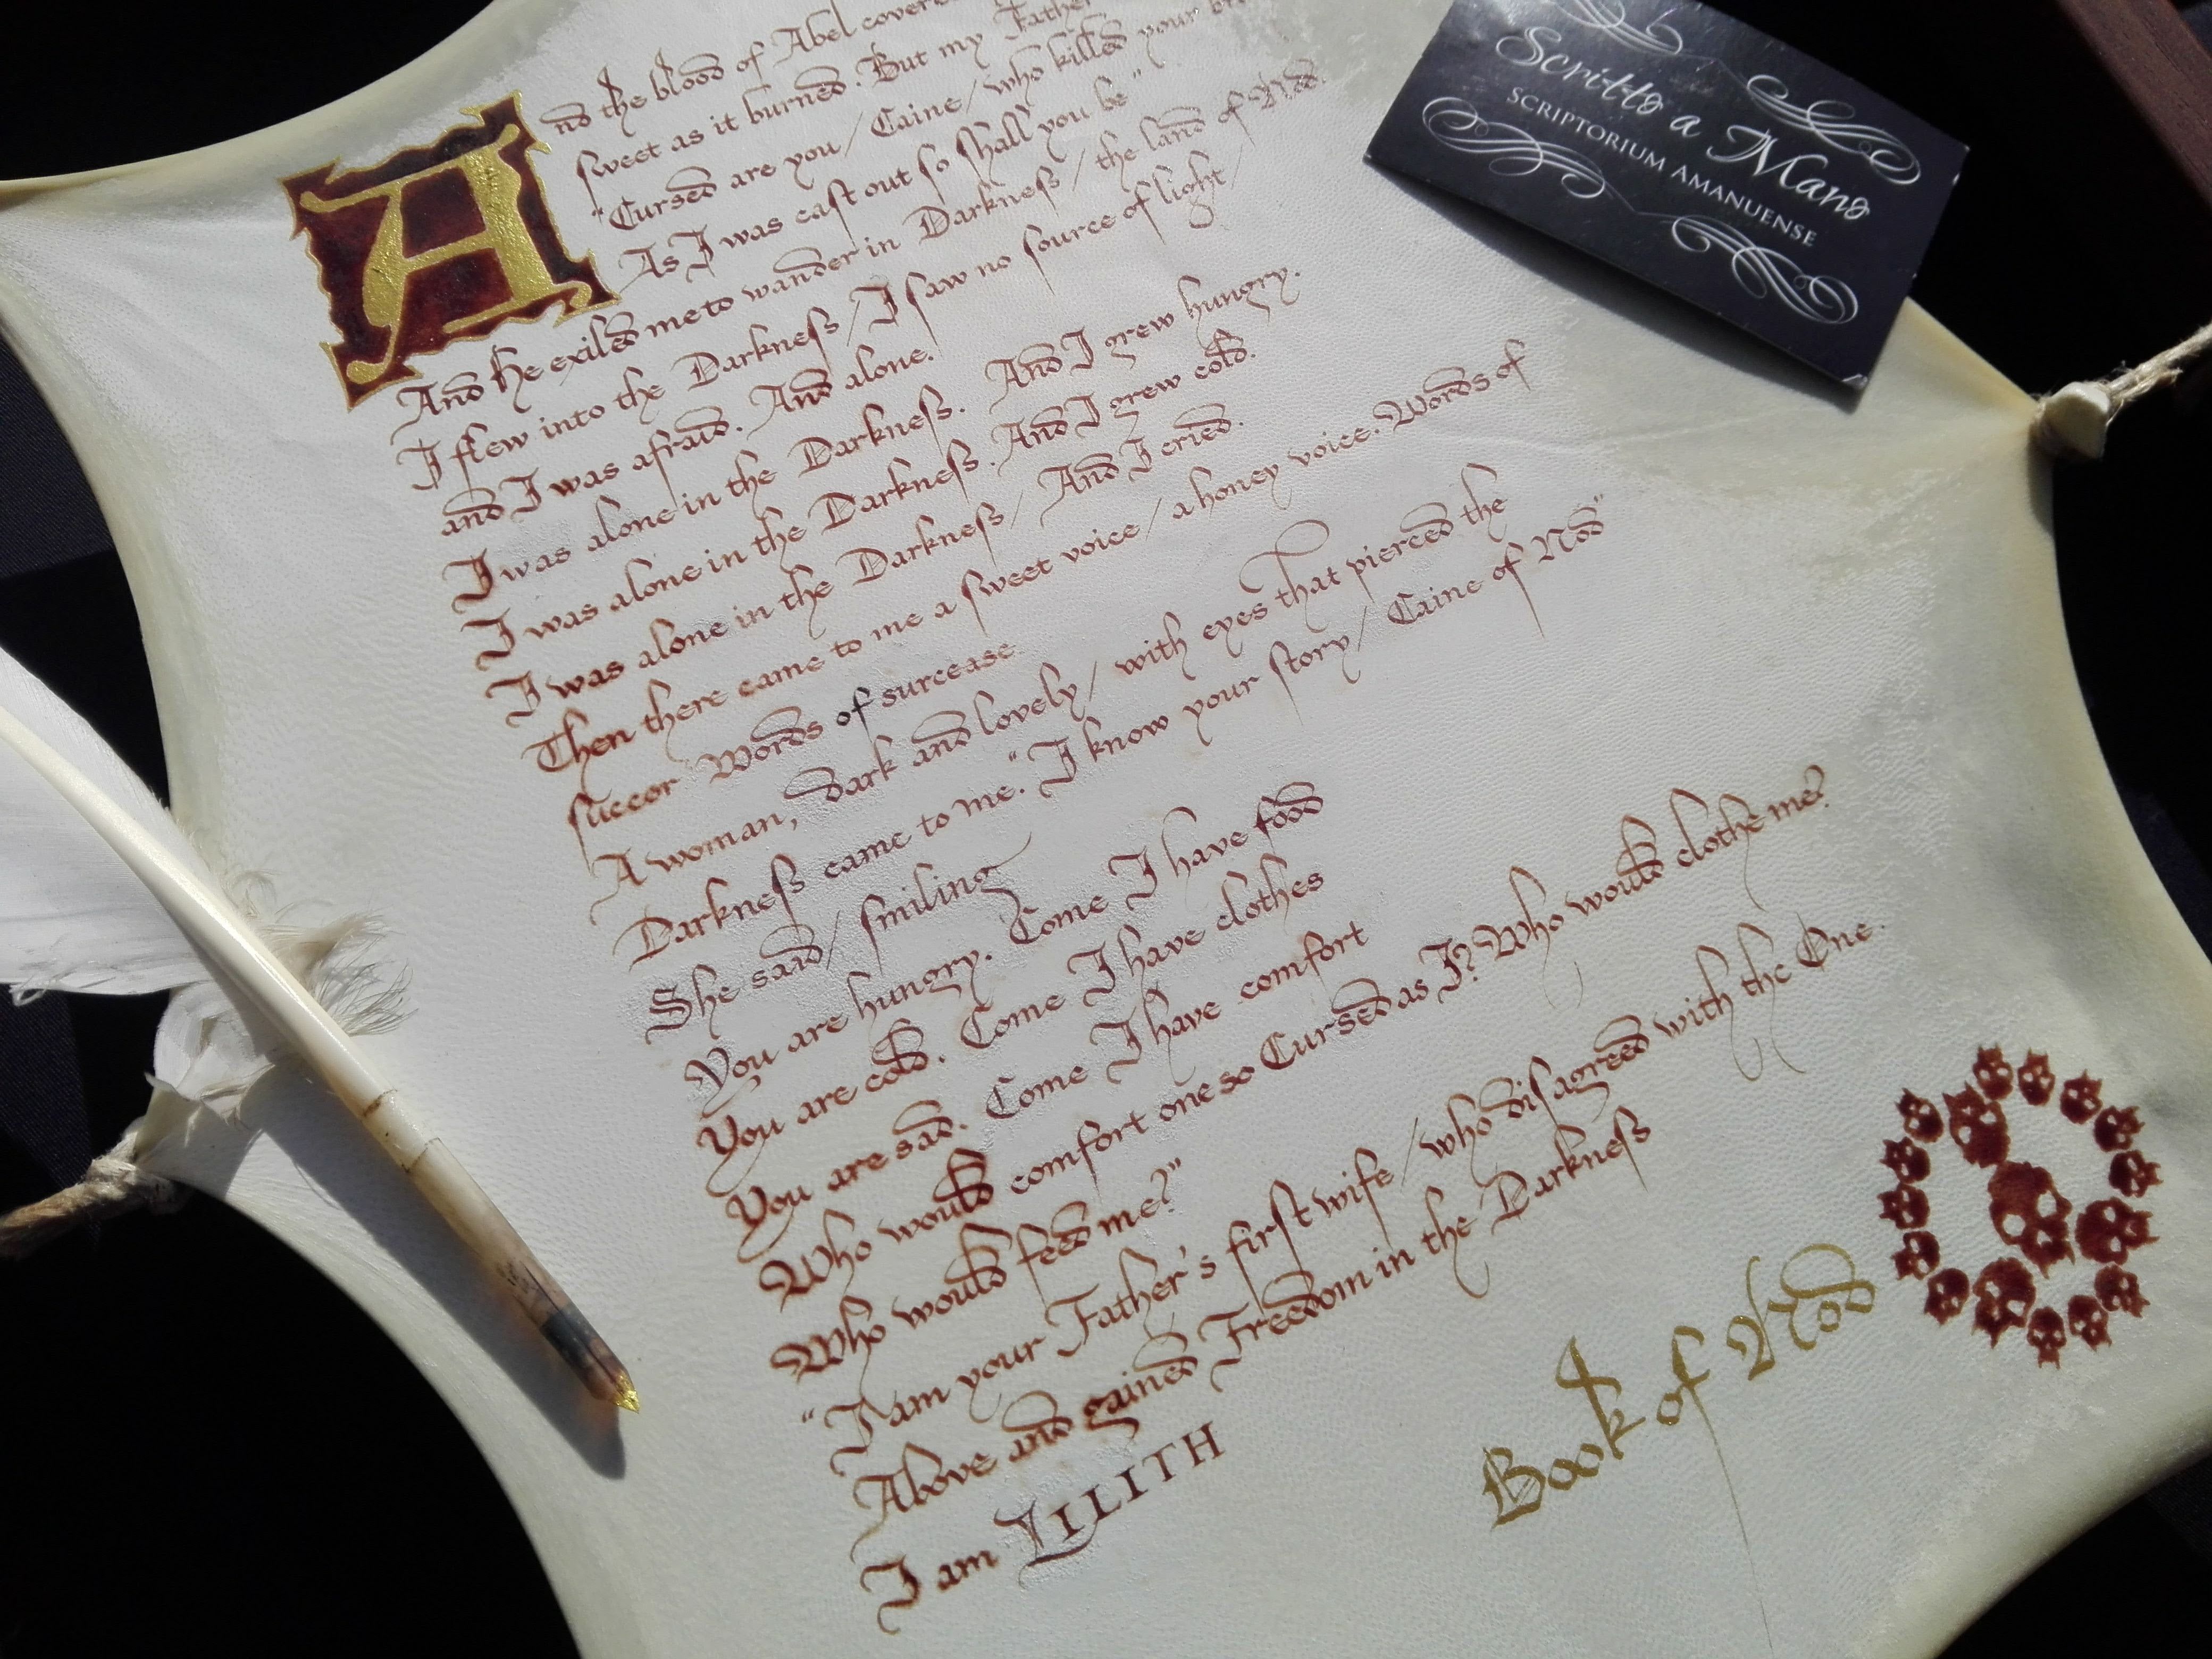 And the blood of Abel covere
sweet as it burned. But my Father
"Cursed are you/ Caine/ who killed your br
As I was cast out so shall you be"
And he exiled me to wander in Darkness/ the land of Nod.
I flew into the Darkness/ I saw no source of light/
and I was afraid. And alone.
I was alone in the Darkness. And I grew hungry.
I was alone in the Darkness. And I grew cold.
I was alone in the Darkness/ And I cried.
Then there came to me a sweet voice/ a honey voice. Words of
succor Words of surcease
A woman, dark and lovely/ with eyes that pierced the
Darkness came to me. "I know your story/ Caine of Nod"
She said/ smiling
You are hungry. Come I have food
You are cold. Come I have clothes
You are sad. Come I have comfort
Who would comfort one so Cursed as I? Who would clothe me?
Who would feed me?"
"I am your Father's first wife/ who disagreed with the One
Above and gained Freedom in the Darkness
I am LILITH
Book of Nod
Scritto a Mano
SCRIPTORIUM AMANUENSE